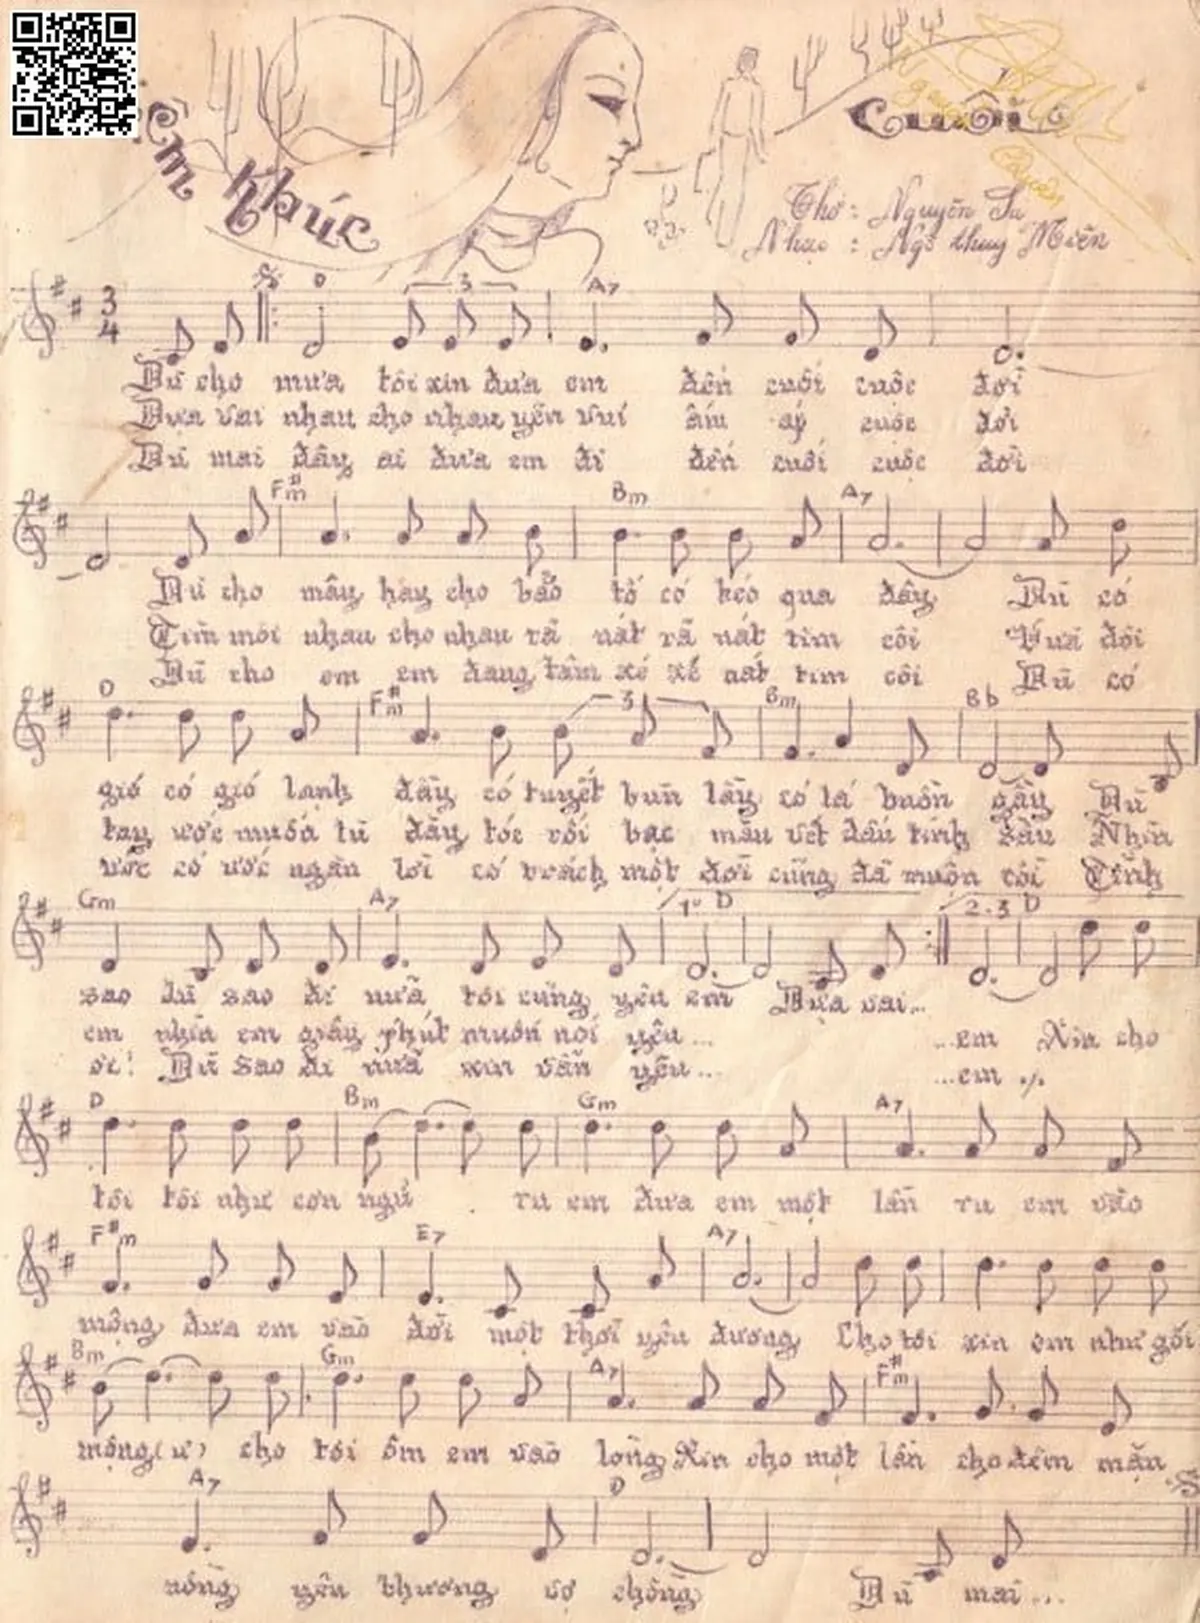 êm khúc Cuối
Thơ: Nguyên Sa
Nhạc: Ngô thụy Miên
3
4
D 3 A7
Dù cho mưa tôi xin đưa em đến cuối cuộc đời
Dựa vai nhau cho nhau yên vui ấm áp cuộc đời
Dù mai đây ai đưa em đi đến cuối cuộc đời
F#m Bm A7
Dù cho mây hay cho bão tố có kéo qua đây Dù có
Tìm môi nhau cho nhau rã nát rã nát tim côi Vuì đôi
Dù cho em em đang tâm xé xé nát tim côi Dù có
D F#m 3 Bm Bb
gió có gió lạnh đầy có tuyết bùn lầy có lá buồn gầy Dù
tay ước muốn tù đầy tóc rối bạc mầu vết dấu tình sầu Nhìn
ước có ước ngàn lời có trách một đời cũng đã muộn rồi Tình
Gm A7 1. D 2.3 D
sao dù sao đi nữa tôi cũng yêu em Dựa vai...
em nhìn em giây phút muốn nói yêu... ...em Xin cho
ơi! Dù sao đi nữa xin vẫn yêu... ...em
D Bm Gm A7
tôi tôi như cơn ngủ ru em đưa em một lần ru em vào
F#m E7 A7
mộng đưa em vào đời một thời yêu đương Cho tôi xin em như gối
Bm Gm A7 F#m
mộng (ư) cho tôi ôm em vào lòng Xin cho một lần cho đêm mặn
A7 D
nồng yêu thương vợ chồng Dù mai...